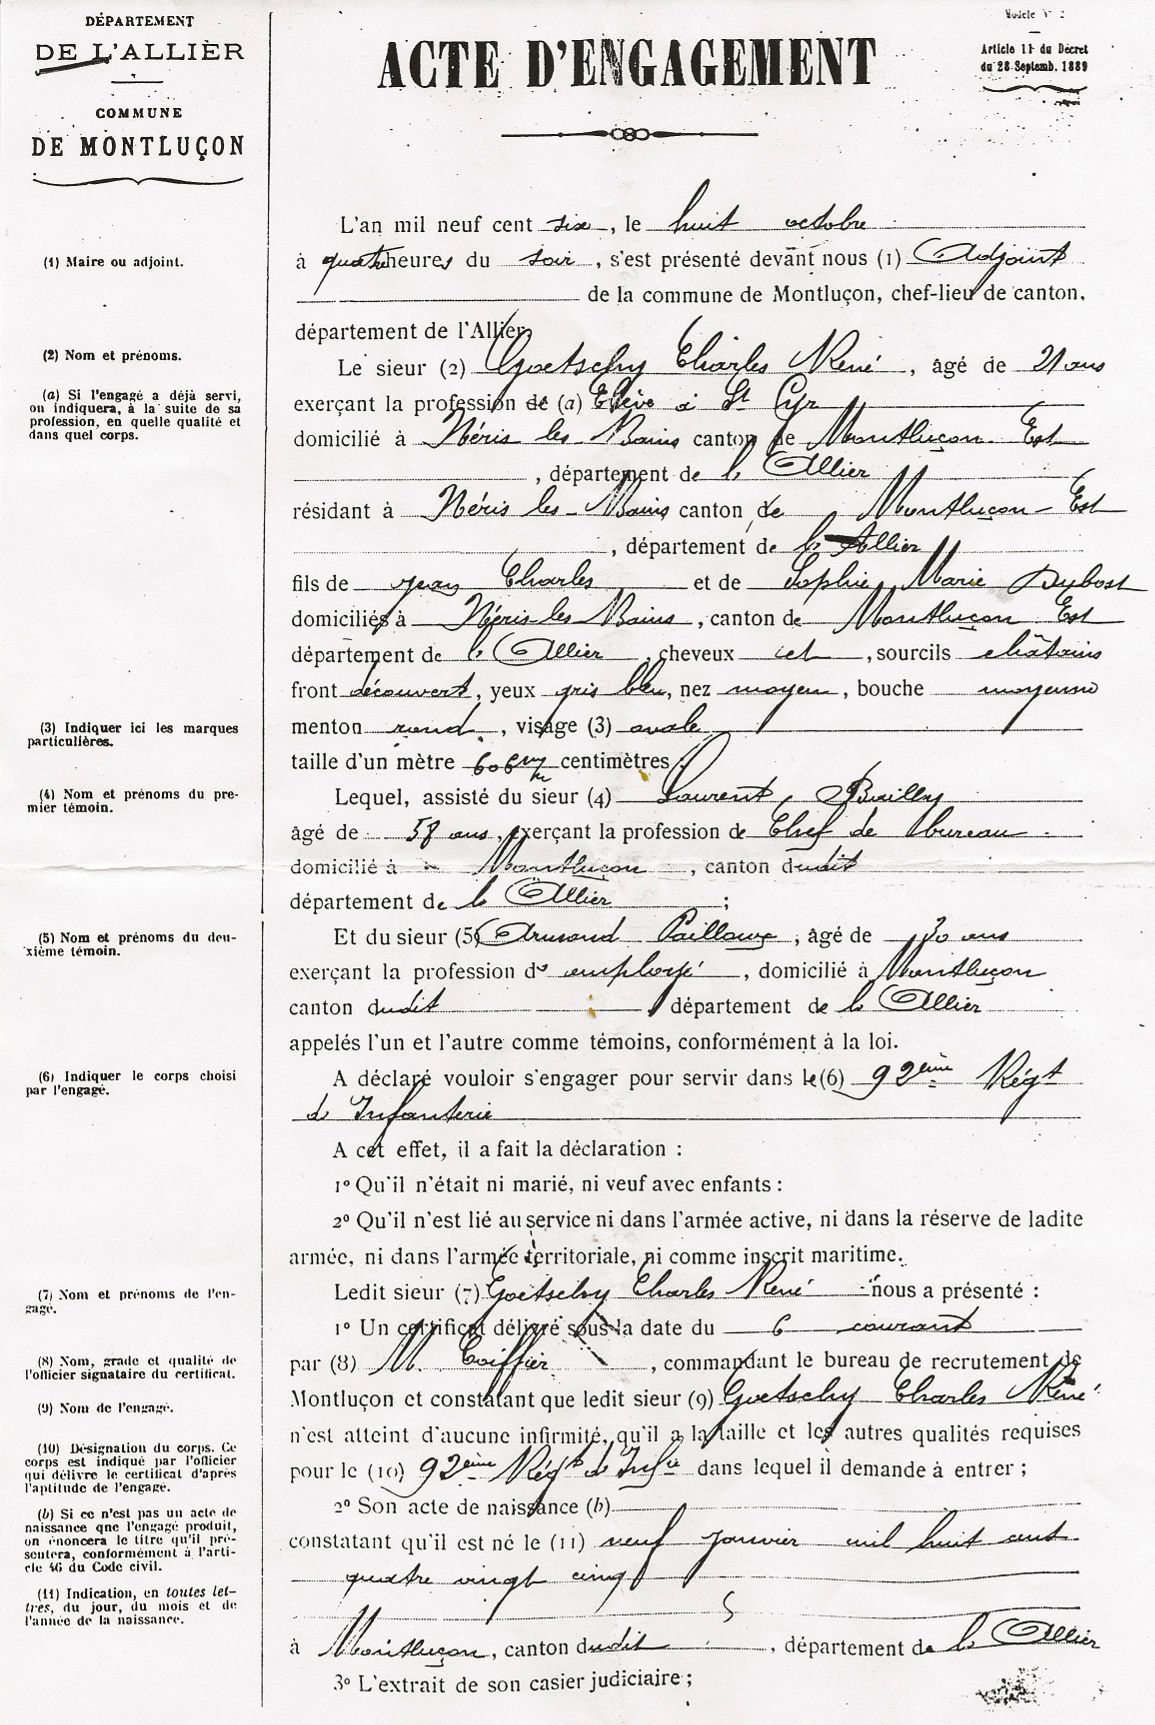 DÉPARTEMENT
DE L'ALLIER
COMMUNE
DE MONTLUÇON
Modèle N° 2
Article 11 du Décret
du 28 Septemb. 1889
ACTE D'ENGAGEMENT
L'an mil neuf cent six, le huit octobre
(1) Maire ou adjoint.
à quatre heures du soir, s'est présenté devant nous (1) Adjoint
de la commune de Montluçon, chef-lieu de canton,
département de l'Allier,
(2) Nom et prénoms.
Le sieur (2) Goetschy Charles René, âgé de 21 ans
(a) Si l'engagé a déjà servi,
on indiquera, à la suite de sa
profession, en quelle qualité et
dans quel corps.
exerçant la profession de (a) Elève à St Cyr
domicilié à Néris les Bains canton de Montluçon Est
, département de l'Allier
résidant à Néris les-Bains canton de Montluçon-Est
, département de l'Allier
fils de Jean Charles et de Sophie Marie Dubost
domiciliés à Néris les Bains, canton de Montluçon Est
département de l'Allier, cheveux et, sourcils châtains
front découvert, yeux gris bleu, nez moyen, bouche moyenne
(3) Indiquer ici les marques
particulières.
menton rond, visage (3) ovale
taille d'un mètre 606 m/m centimètres;
(4) Nom et prénoms du pre-
mier témoin.
Lequel, assisté du sieur (4) Laurent, Bailly
âgé de 58 ans, exerçant la profession de Chef de bureau
domicilié à Montluçon, canton dudit
département de l'Allier;
(5) Nom et prénoms du deu-
xième témoin.
Et du sieur (5) Armand Pailloux, âgé de 30 ans
exerçant la profession d'employé, domicilié à Montluçon
canton dudit, département de l'Allier
appelés l'un et l'autre comme témoins, conformément à la loi.
(6) Indiquer le corps choisi
par l'engagé.
A déclaré vouloir s'engager pour servir dans le (6) 92ème Régt
d'Infanterie
A cet effet, il a fait la déclaration :
1º Qu'il n'était ni marié, ni veuf avec enfants :
2º Qu'il n'est lié au service ni dans l'armée active, ni dans la réserve de ladite
armée, ni dans l'armée territoriale, ni comme inscrit maritime.
(7) Nom et prénoms de l'en-
gagé.
Ledit sieur (7) Goetschy Charles René nous a présenté :
1º Un certificat délivré sous la date du 6 courant
(8) Nom, grade et qualité de
l'officier signataire du certificat.
par (8) M. Coiffier, commandant le bureau de recrutement de
(9) Nom de l'engagé.
Montluçon et constatant que ledit sieur (9) Goetschy Charles René
n'est atteint d'aucune infirmité, qu'il a la taille et les autres qualités requises
(10) Désignation du corps. Ce
corps est indiqué par l'officier
qui délivre le certificat d'après
l'aptitude de l'engagé.
pour le (10) 92ème Régt d'Infie dans lequel il demande à entrer ;
2º Son acte de naissance (b)
(b) Si ce n'est pas un acte de
naissance que l'engagé produit,
on énoncera le titre qu'il pré-
sentera, conformément à l'arti-
cle 46 du Code civil.
constatant qu'il est né le (11) neuf janvier mil huit cent
quatre vingt cinq
(11) Indication, en toutes let-
tres, du jour, du mois et de
l'année de la naissance.
à Montluçon, canton dudit, département de l'Allier
3º L'extrait de son casier judiciaire ;